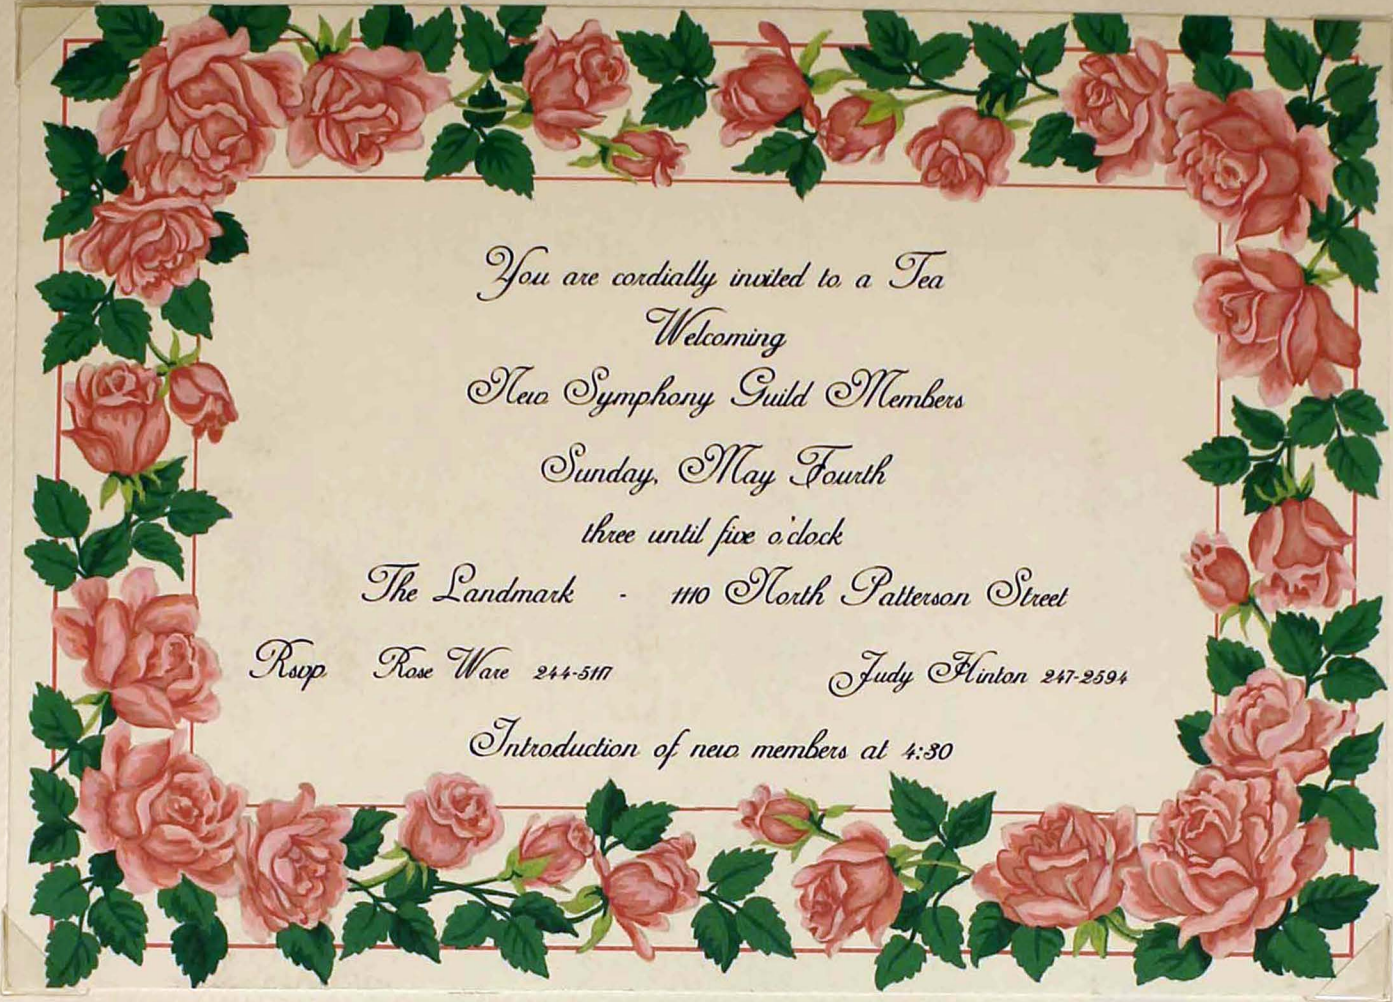 You are cordially invited to a Tea
Welcoming
New Symphony Guild Members
Sunday, May Fourth
three until five o'clock
The Landmark - 1110 North Patterson Street
Rsvp Rose Ware 244-5117 Judy Hinton 247-2594
Introduction of new members at 4:30